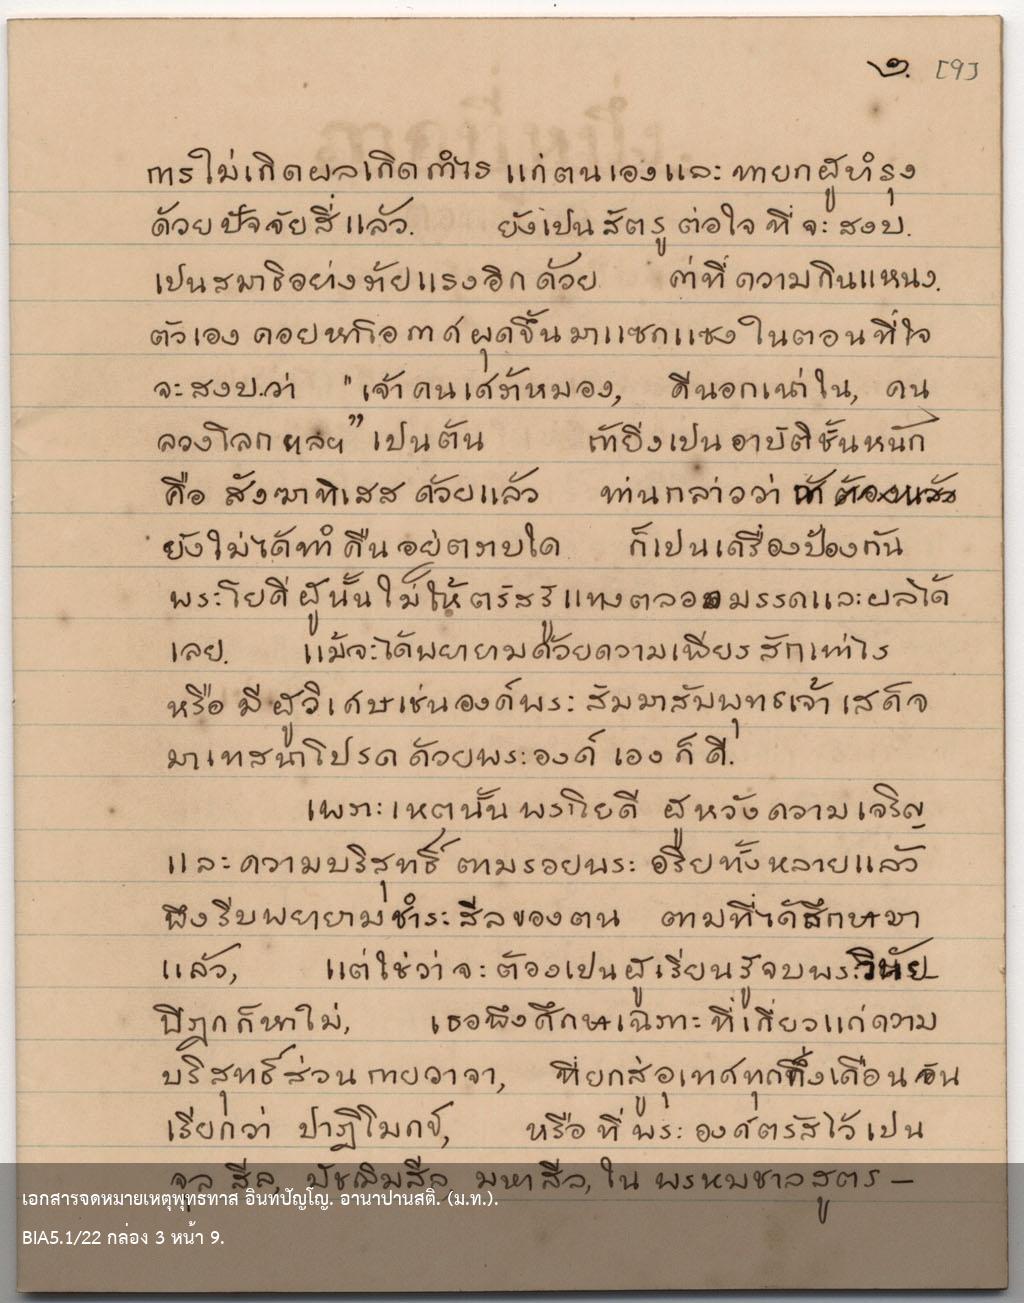 ๒. [9]
การไม่เกิดผลเกิดกำไร แก่ตนเองและ ทายกผู้บำรุง
ด้วยปัจจัยสี่แล้ว. ยังเป็นสัตรู ต่อใจ ที่ จะ สงบ.
เป็นสมาธิอย่างร้ายแรงอีกด้วย ค่าที่ความกินแหนง.
ตัวเอง คอยหาโอกาศผุดขึ้นมาแซกแซง ในตอนที่ใจ
จะสงบ.ว่า "เจ้าคนเศร้าหมอง, ดีนอกเน่าใน, คน
ลวงโลก ฯลฯ" เป็นต้น ถ้ายิ่งเป็นอาบัติชั้นหนัก
คือ สังฆาทิเสส ด้วยแล้ว ท่านกล่าวว่า
ยังไม่ได้ทำคืนอยู่ตราบใด ก็เป็นเครื่องป้องกัน
พระโยคีผู้นั้นไม่ให้ตรัสรู้แทงตลอดมรรคและผลได้
เลย. แม้จะได้พยายามด้วยความเพียรสักเท่าไร
หรือ มีผู้วิเศษเช่นองค์พระสัมมาสัมพุทธเจ้า เสด็จ
มาเทสนาโปรด ด้วยพระองค์ เอง ก็ ดี.
เพราะเหตุนั้น พระโยคี ผู้หวังความเจริญ
และความบริสุทธิ์ ตามรอยพระอริยทั้งหลายแล้ว
พึงรีบพยายามชำระสีลของตน ตามที่ได้สึกษมา
แล้ว, แต่ใช่ว่าจะต้องเป็นผู้เรียนรู้จบพระวินัย
ปิฎกก็หาไม่, เธอพึงศึกษเฉพาะที่เกี่ยวแก่ความ
บริสุทธิ์ส่วนกายวาจา, ที่ยกสู่อุเทศทุกกึ่งเดือน อัน
เรียกว่า ปาฏิโมกข์, หรือที่พระองค์ตรัสไว้เป็น
จุลสีล, มัชฌิมสีล มหาสีล, ใน พรหมชาลสูตร —
เอกสารจดหมายเหตุพุทธทาส อินทปัญโญ. อานาปานสติ. (ม.ท.).
BIA5.1/22 กล่อง 3 หน้า 9.